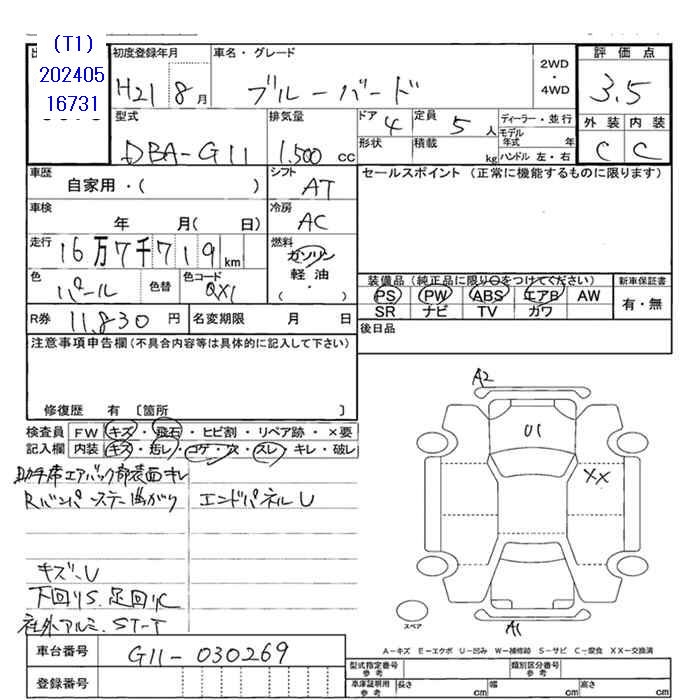 (T1)
202405
16731
初度登録年月 車名・グレード 評価点
H21 8月 ブルーバード 2WD・4WD 3.5
外装 内装
C C
型式 排気量 ドア 4 定員 5人 ディーラー・並行
DBA-G11 1.500cc 形状 積載 kg モデル年式 年
ハンドル 左・右
車歴 シフト セールスポイント(正常に機能するものに限ります)
自家用・( ) AT
車検 冷房
年 月( 日) AC
走行 燃料
16万7千719km ガソリン
軽油
・
( )
色 色替 色コード
パール QX1
装備品(純正品に限り○をつけてください) 新車保証書
PS PW ABS エアB AW 有・無
SR ナビ TV カワ
R券 11,830円 名変期限 月 日
後日品
注意事項申告欄(不具合内容等は具体的に記入して下さい)
修復歴 有 〔箇所 〕
検査員 FW キズ・飛石・ヒビ割・リペア跡・×要
記入欄 内装 キズ・汚レ・コゲ・穴・スレ・キレ・破レ
助手席エアバック部表面キレ
Rバンパーステー曲がり エンドパネルU
キズ、U
下回りS、足回りC
社外アルミ、ST-T
A2
U1
XX
A1
スペア
A-キズ E-エクボ U-凹み W-補修跡 S-サビ C-腐食 XX-交換済
車台番号 G11-030269
登録番号
型式指定番号 参考 類別区分番号 参考
車庫証明用 参考 長さ cm 幅 cm 高さ cm